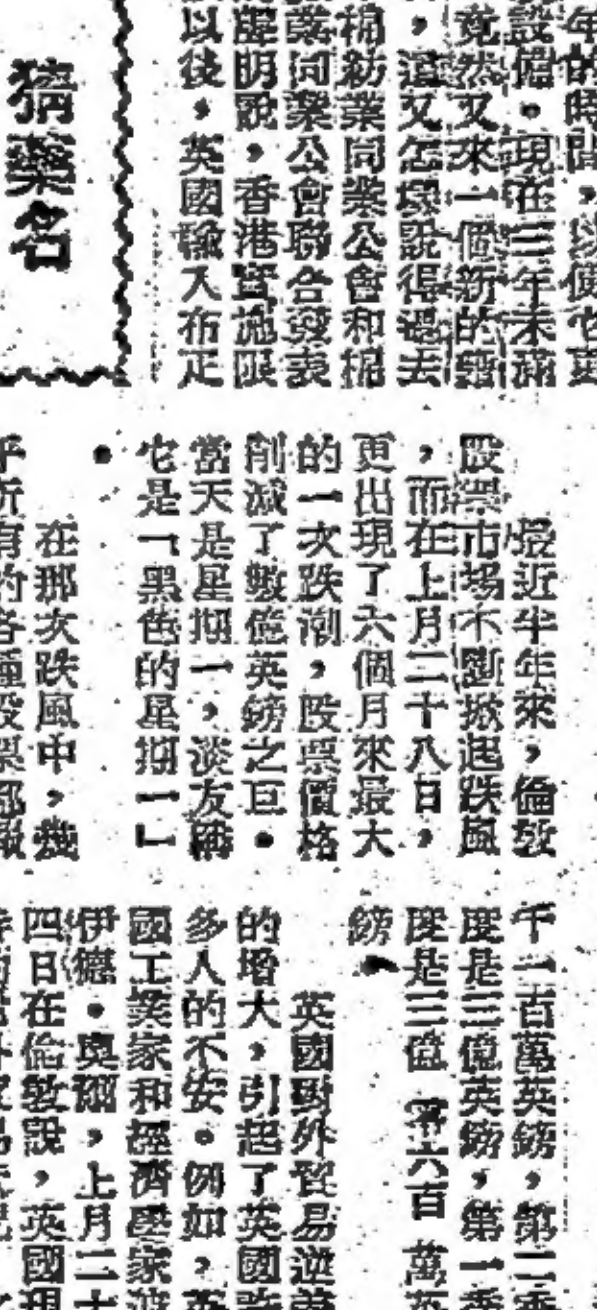 年的時間,以便它更
設備。現在三年未滿
竟然又來一個新的
,這又怎樣說得過去
棉紡業同業公會和棉
業同業公會聯合發表
聲明說,香港實施限
以後,英國輸入布疋
猜藥名
最近半年來,倫敦
股票市場不斷掀起跌風
,而在上月二十八日,
更出現了六個月來最大
的一次跌潮,股票價格
削減了數億英鎊之巨。
當天是星期一,淡友稱
它是「黑色的星期一」
。
在那次跌風中,幾
乎所有的各種股票都報
千一百萬英鎊,第二季
度是三億英鎊,第一季
度是三億零六百萬英
鎊。
英國對外貿易逆差
的增大,引起了英國許
多人的不安。例如,英
國工業家和經濟學家
伊德·奧爾,上月二十
四日在倫敦說,英國現